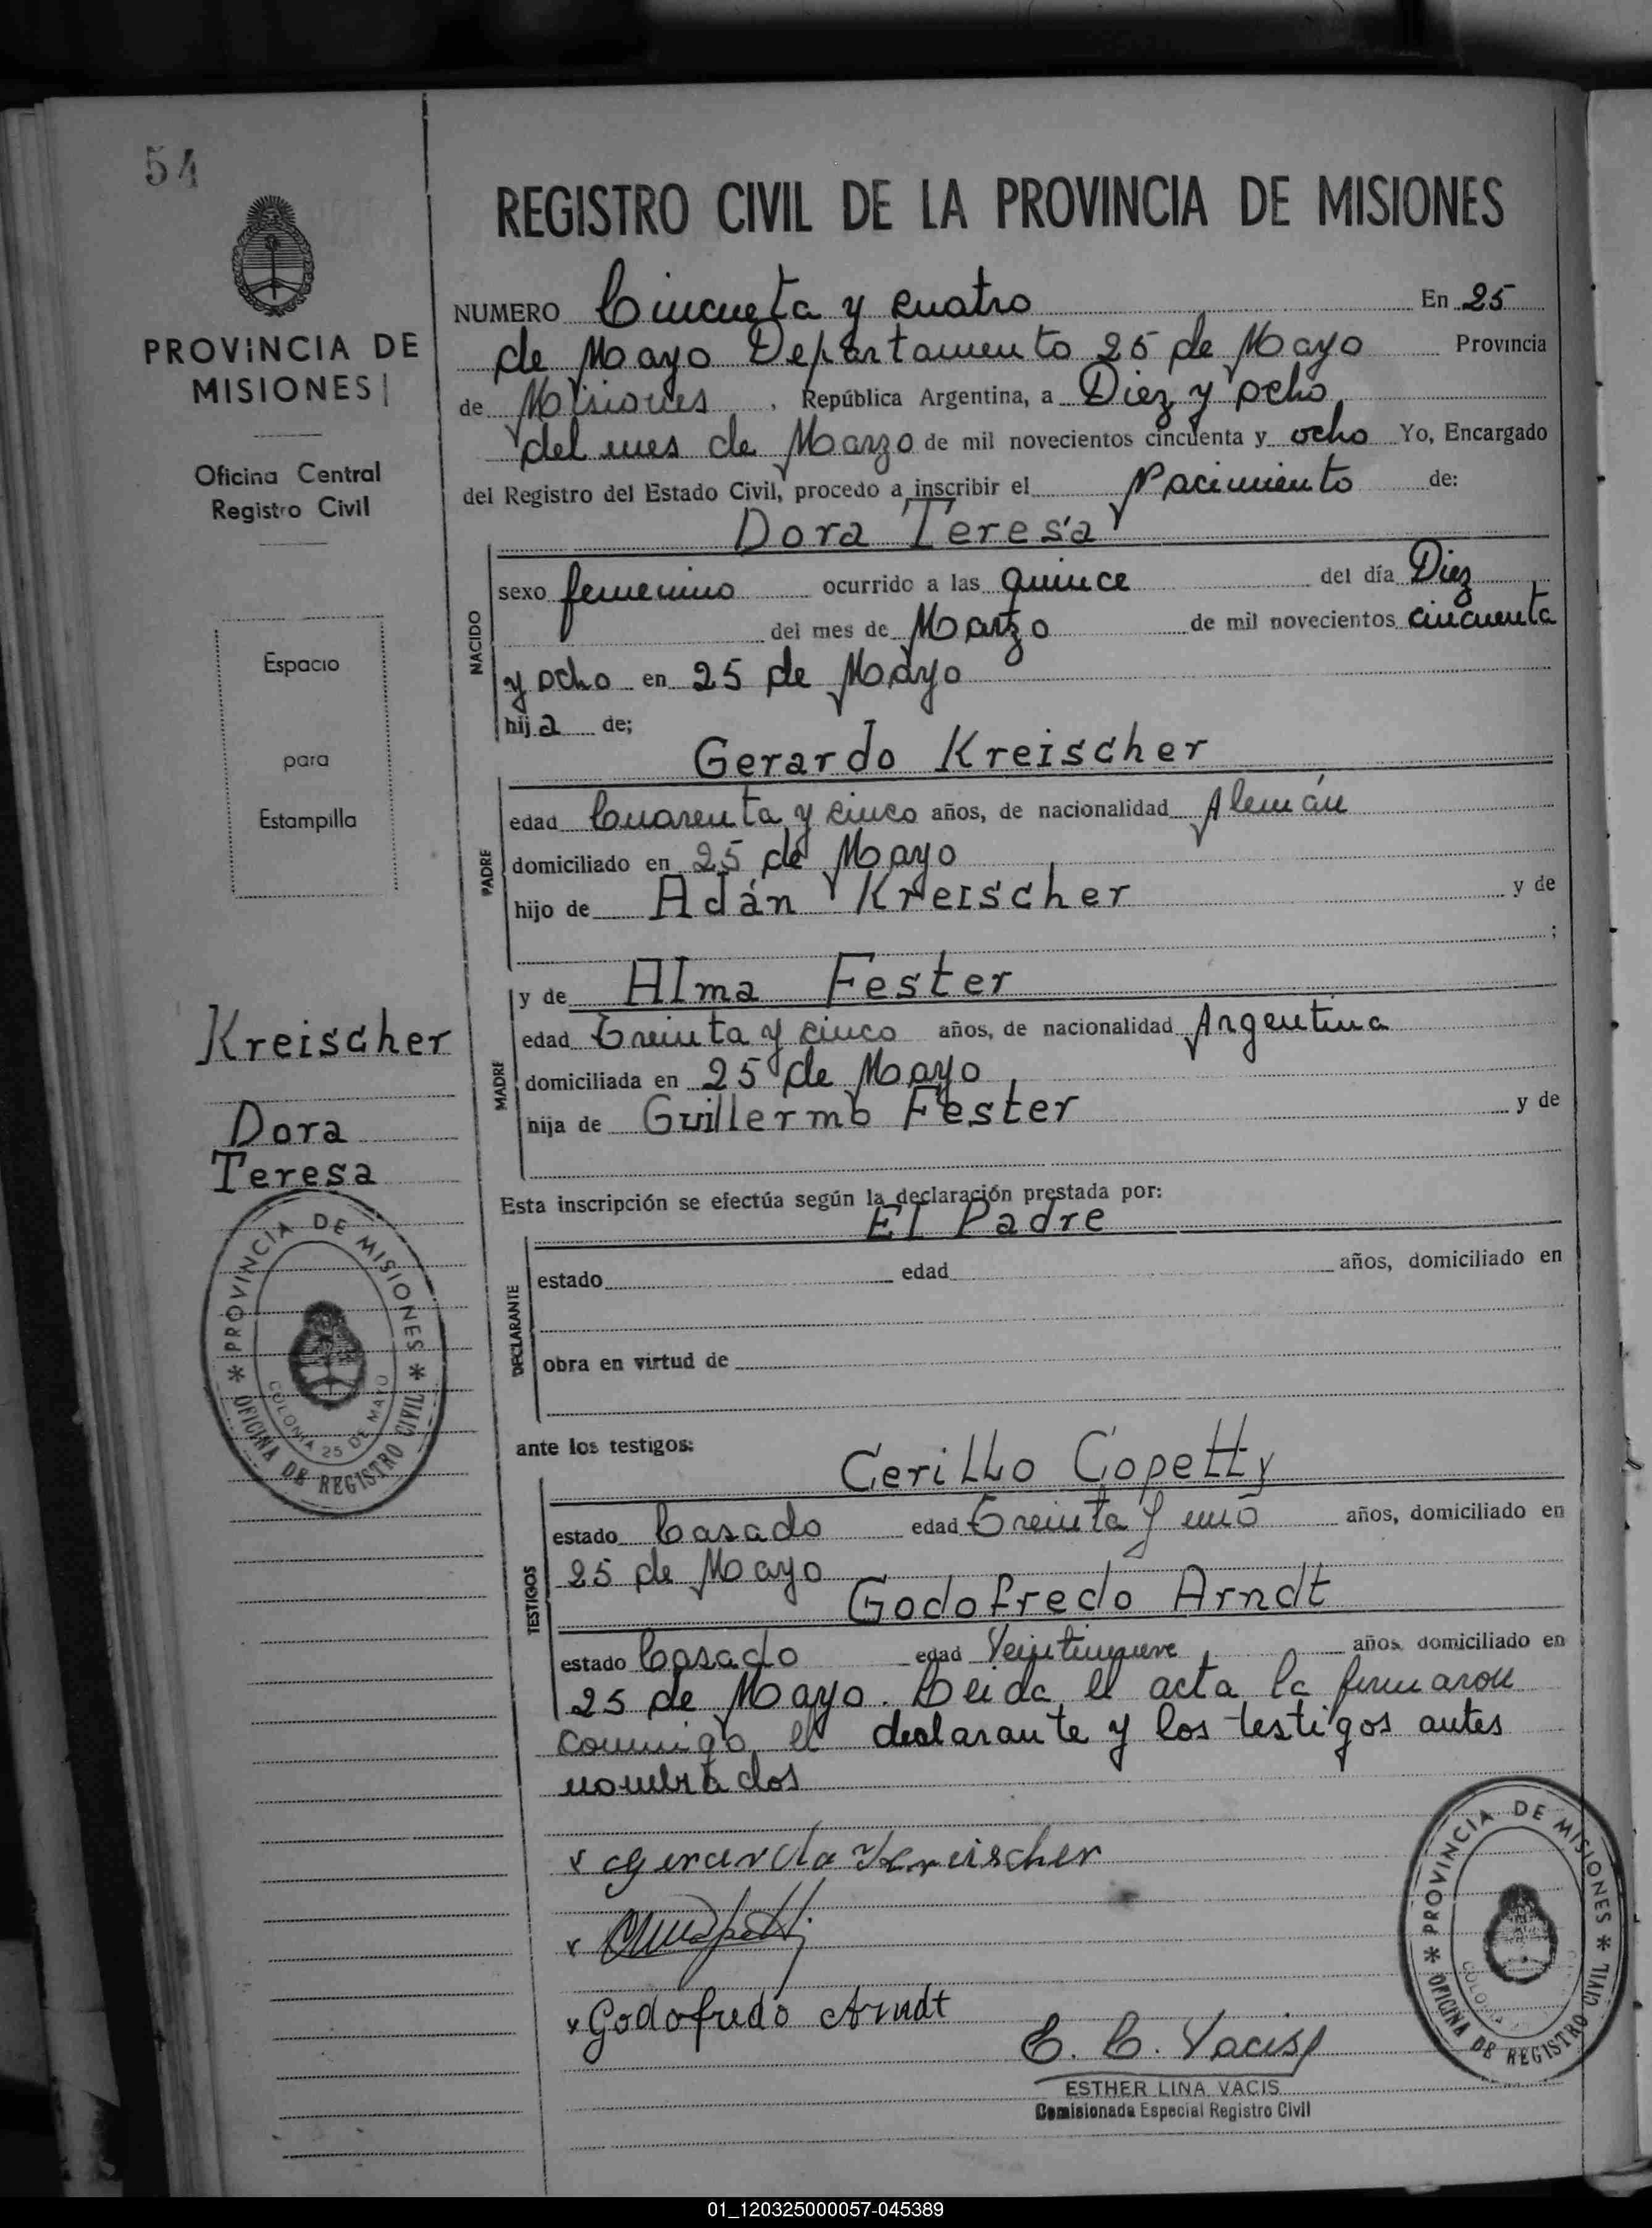 54
REGISTRO CIVIL DE LA PROVINCIA DE MISIONES
PROVINCIA DE
MISIONES
Oficina Central
Registro Civil
Espacio
para
Estampilla
Kreischer
Dora
Teresa
PROVINCIA DE MISIONES
COLONIA 25 DE MAYO
* OFICINA DE REGISTRO CIVIL *
NUMERO Cincueta y cuatro En 25
de Mayo Departamento 25 de Mayo Provincia
de Misiones, República Argentina, a Diez y ocho
del mes de Marzo de mil novecientos cincuenta y ocho Yo, Encargado
del Registro del Estado Civil, procedo a inscribir el Nacimiento de:
Dora Teresa
NACIDO
sexo femenino ocurrido a las quince del día Diez
del mes de Marzo de mil novecientos cincuenta
y ocho en 25 de Mayo
hija de;
Gerardo Kreischer
PADRE
edad Cuarenta y cinco años, de nacionalidad Alemán
domiciliado en 25 de Mayo
hijo de Adán Kreischer y de
;
y de Alma Fester
MADRE
edad Treinta y cinco años, de nacionalidad Argentina
domiciliada en 25 de Mayo
hija de Guillermo Fester y de
Esta inscripción se efectúa según la declaración prestada por:
El Padre
DECLARANTE
estado edad años, domiciliado en
obra en virtud de
ante los testigos:
Cerillo Copetty
TESTIGOS
estado Casado edad Treinta y uno años, domiciliado en
25 de Mayo
Godofredo Arndt
estado Casado edad Veintinueve años domiciliado en
25 de Mayo. Leida el acta la firmaron
conmigo el declarante y los testigos antes
nombrados
x Gerardo Kreischer
x
x Godofredo Arndt
E. L. Vacis
ESTHER LINA VACIS
Comisionada Especial Registro Civil
PROVINCIA DE MISIONES
* OFICINA DE REGISTRO CIVIL *
01_120325000057-045389